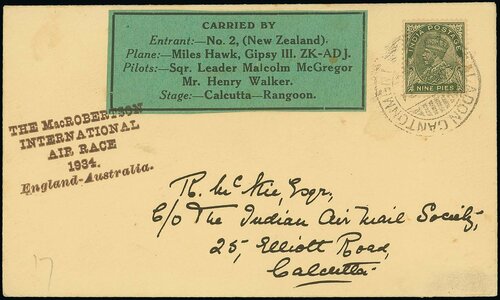 CARRIED BY
Entrant:—No. 2, (New Zealand).
Plane:—Miles Hawk, Gipsy III. ZK-ADJ.
Pilots:—Sqr. Leader Malcolm McGregor
Mr. Henry Walker.
Stage:—Calcutta—Rangoon.
INDIA POSTAGE
NINE PIES
CANTONMENT
THE MacROBERTSON
INTERNATIONAL
AIR RACE
1934.
England-Australia.
R. McNie, Esqr,
C/o The Indian Air Mail Society,
25, Elliott Road,
Calcutta.
17